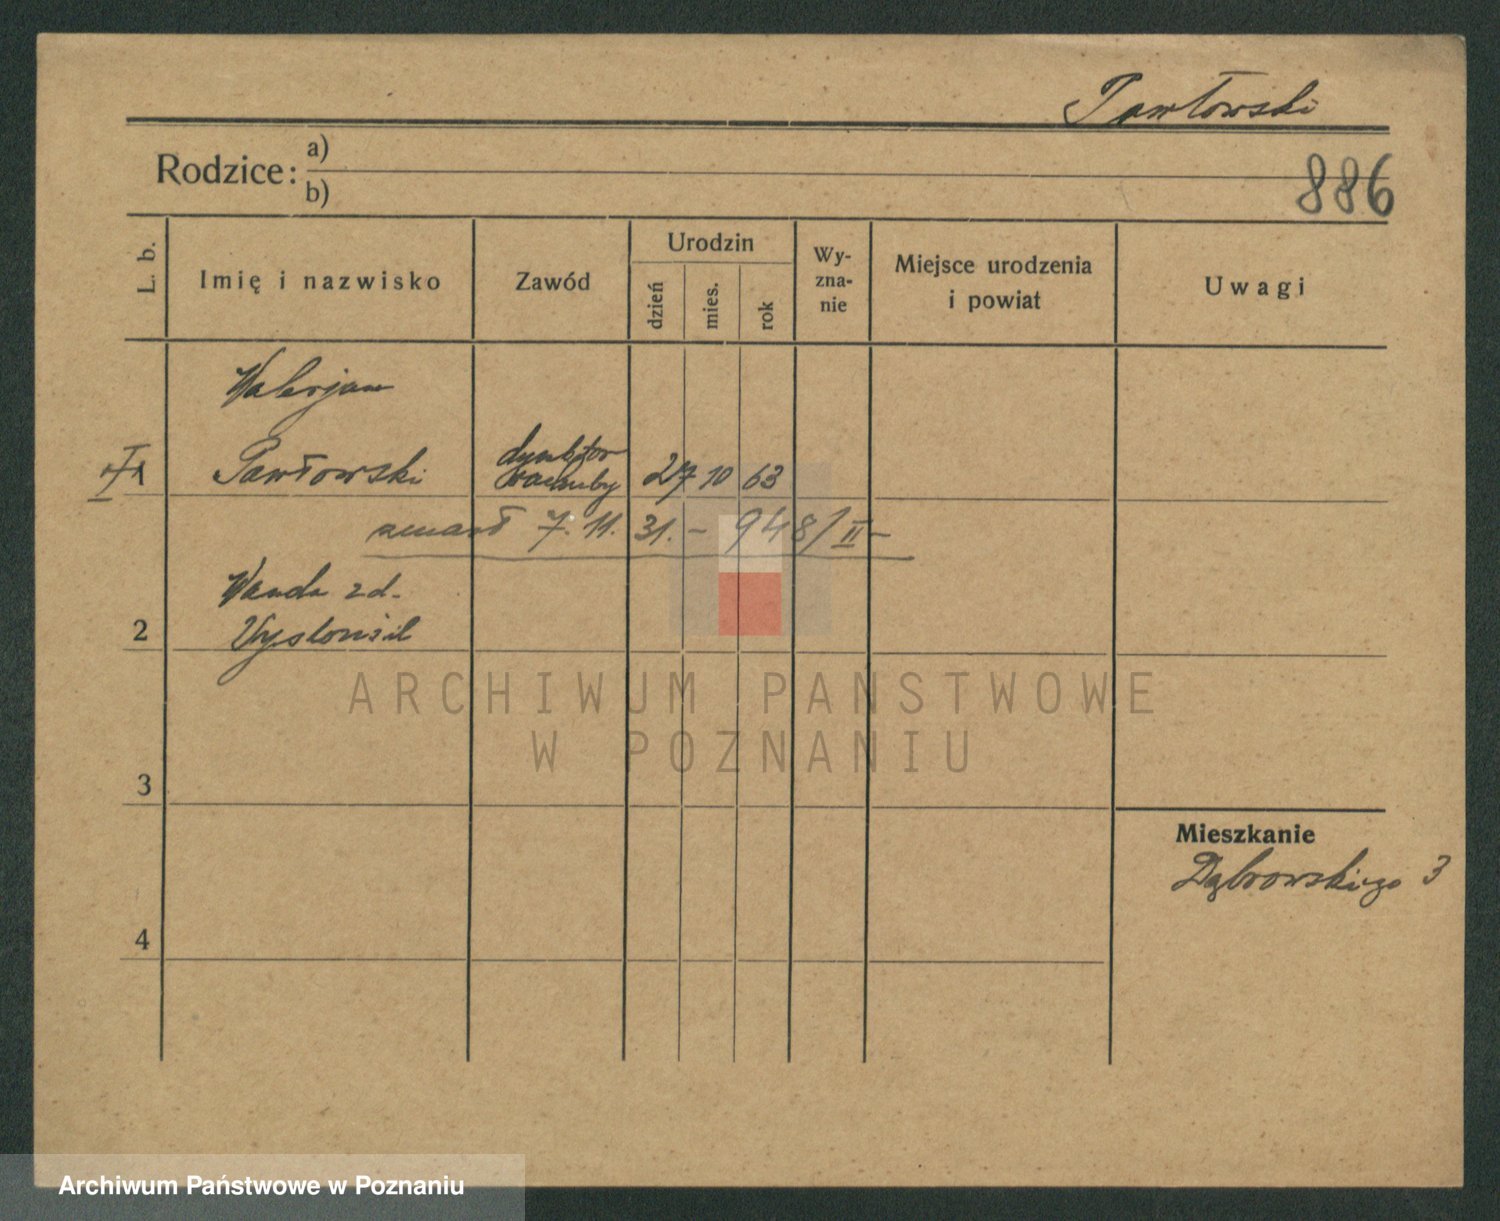 Pawłowski
Rodzice: a)
b)
886
L. b.
Imię i nazwisko
Zawód
Urodzin
dzień
mies.
rok
Wy-
zna-
nie
Miejsce urodzenia
i powiat
Uwagi
Walerjan
1 Pawłowski dyrektor 27 10 63
zmarł 7. 11. 31. - 948/II-
Wanda zd.
2
3
Mieszkanie
Dąbrowskiego 3
4
ARCHIWUM PAŃSTWOWE
W POZNANIU
Archiwum Państwowe w Poznaniu